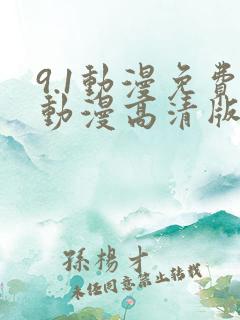 9.1動漫免費
動漫高清版
孫楊才
未经同意禁止转载